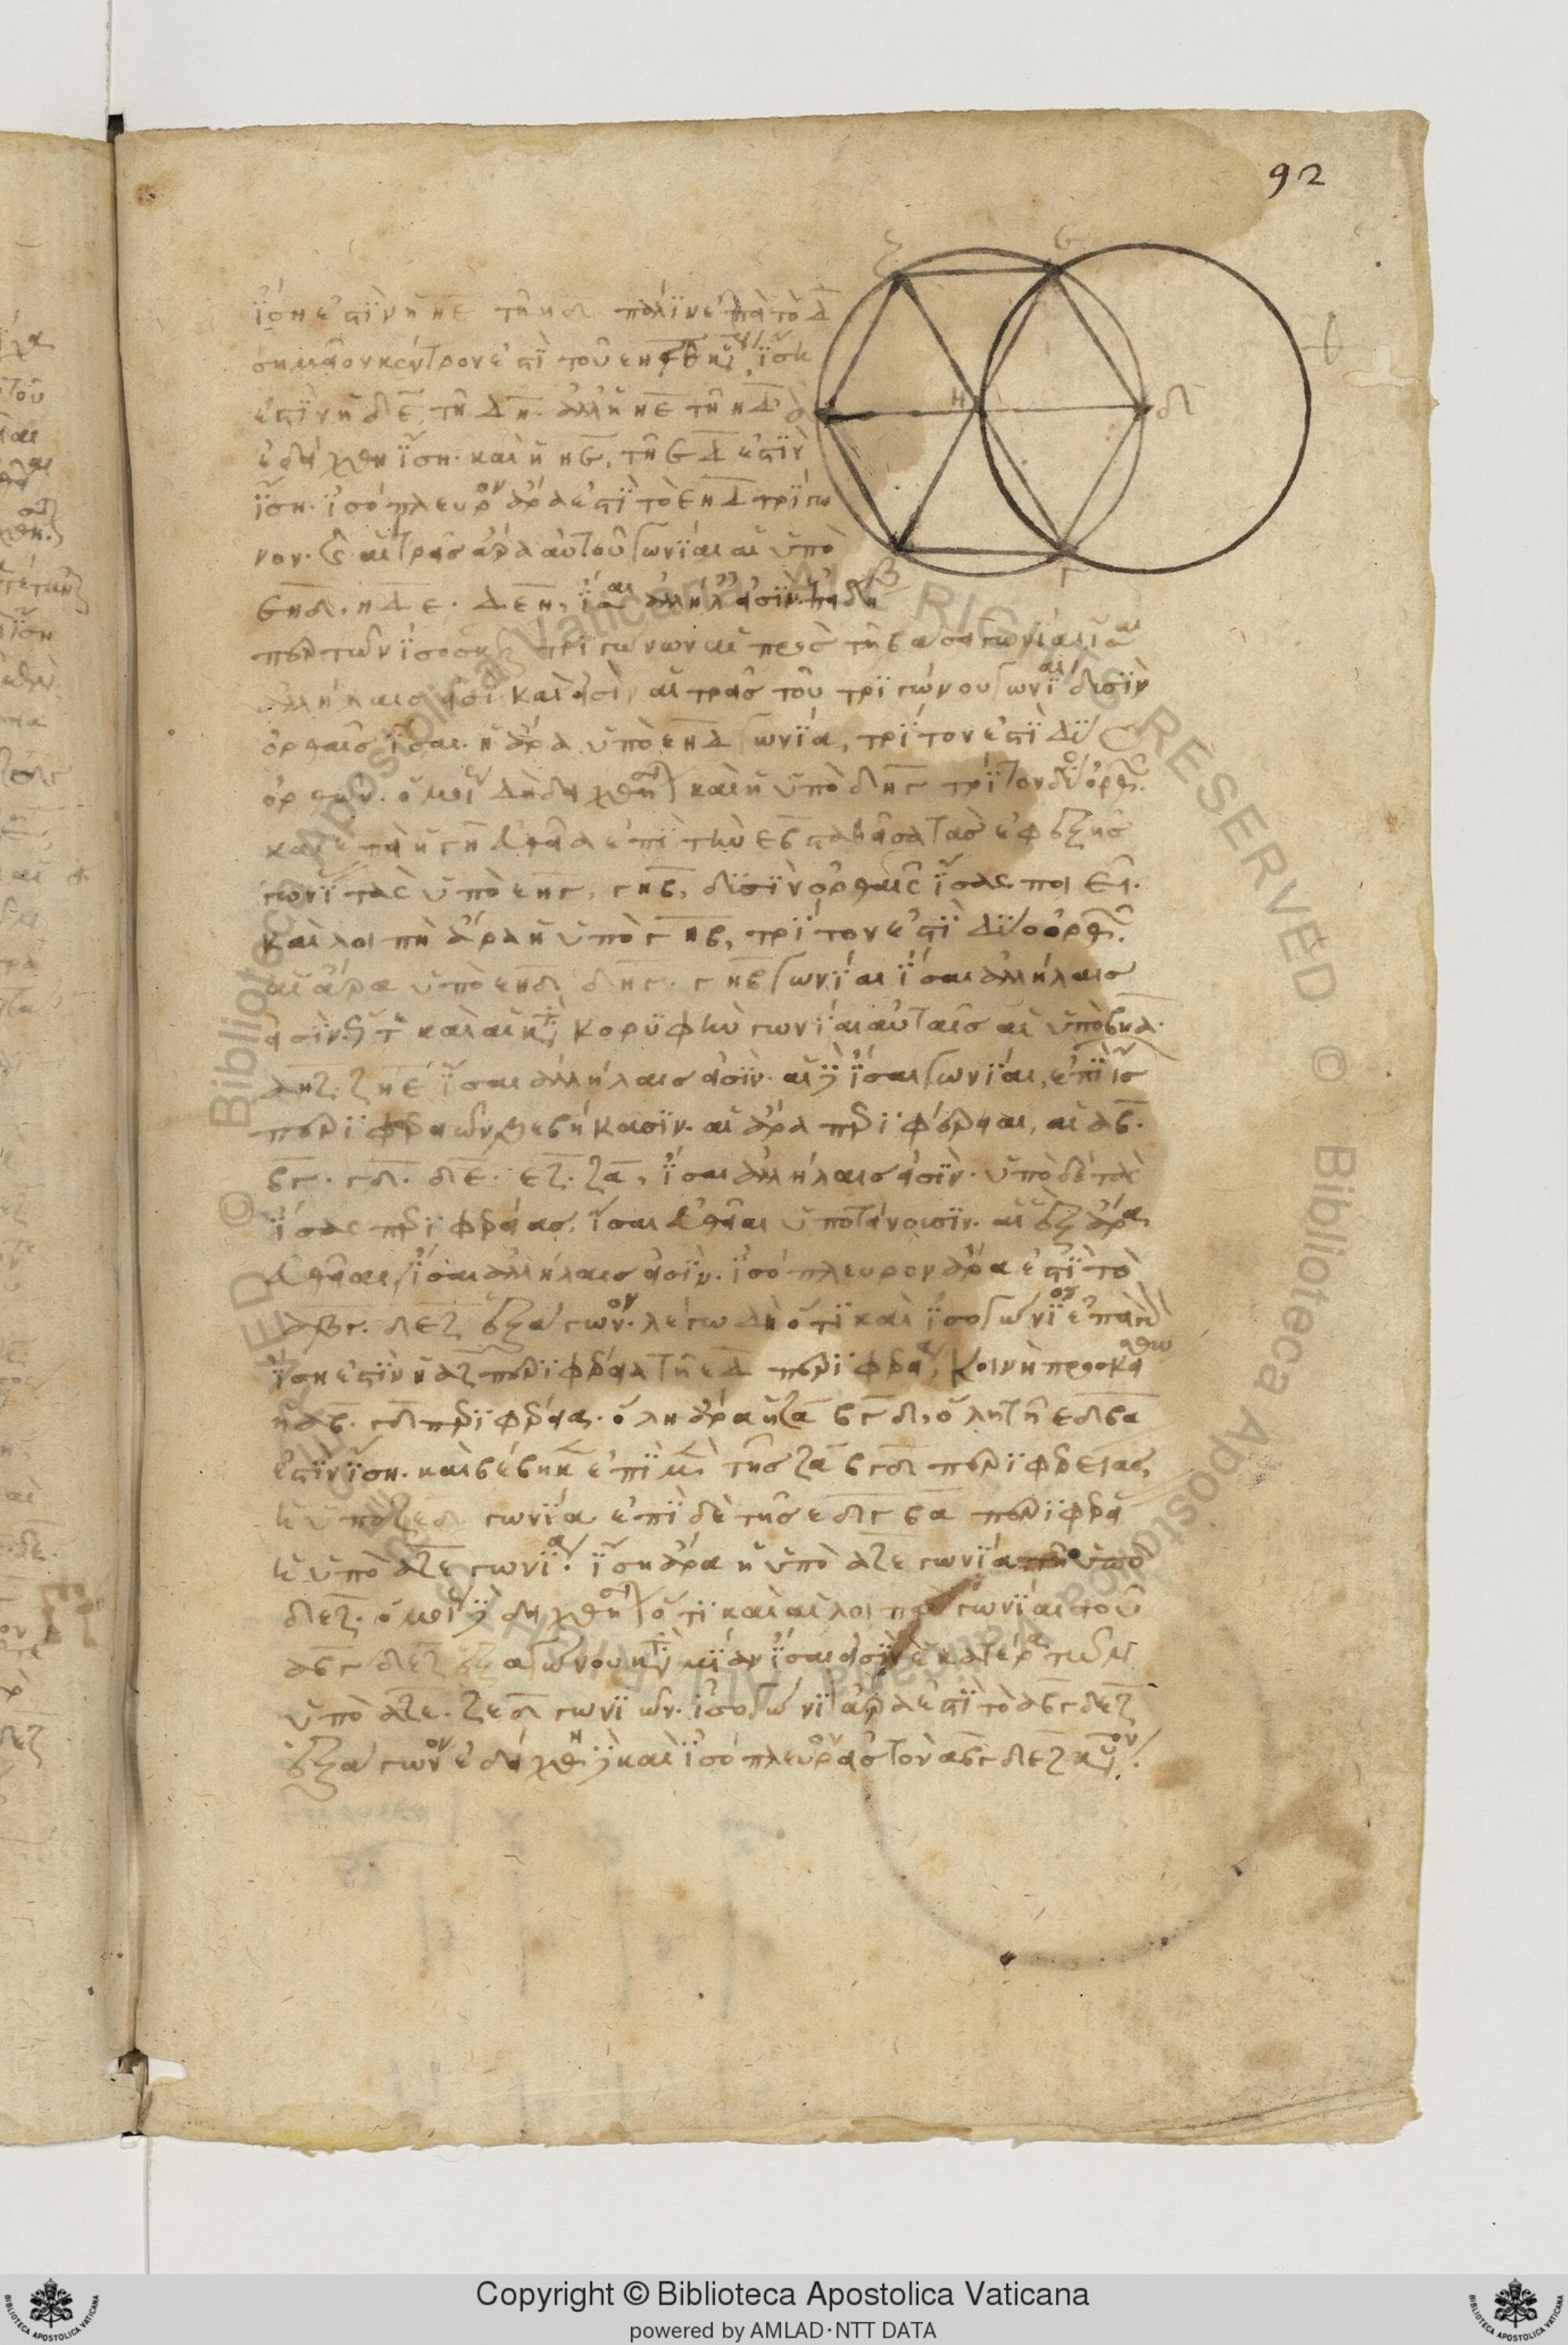 92
ἴση ἐστὶν ἡ ηε τῆ ηδ πάλιν ἐπεὶ τὸ δ
σημεῖον κέντρον ἐστὶ τοῦ ἴση
ἐστὶν ἡ δε τῆ δη. ἀλλ' ἡ ηε τῆ ηδ
ἐδείχθη ἴση. καὶ ἡ ηε, τῆ εδ ἐστὶν
ἴση. ἰσόπλευρον ἄρα ἐστὶ τὸ εηδ τρίγω
νον. καὶ αἱ τρεῖς ἄρα αὐτοῦ γωνίαι αἱ ὑπὸ
εηδ. ηδε. δεη, ἴσαι ἀλλήλαις εἰσὶν. ἐπειδή
περ τῶν ἰσοσκελῶν τριγώνων αἱ πρὸς τῆ βάσει γωνίαι ἴσαι
ἀλλήλαις εἰσὶ καὶ εἰσὶν αἱ τρεῖς τοῦ τριγώνου γωνίαι δυσὶν
ὀρθαῖς ἴσαι. ἡ ἄρα ὑπὸ εηδ γωνία, τρίτον ἐστὶ δύο
ὀρθῶν. ὁμοίως δὴ δειχθήσεται καὶ ἡ ὑπὸ δηγ τρίτον δύο ὀρθῶν.
καὶ ἐπεὶ ἡ γη εὐθεῖα ἐπὶ τὴν εβ σταθεῖσα τὰς ἐφεξῆς
γωνίας τὰς ὑπὸ εηγ, γηβ, δυσὶν ὀρθαῖς ἴσας ποιεῖ.
καὶ λοιπὴ ἄρα ἡ ὑπὸ γηβ, τρίτον ἐστὶ δύο ὀρθῶν.
αἱ ἄρα ὑπὸ εηδ δηγ. γηβ γωνίαι ἴσαι ἀλλήλαις
εἰσὶν. ὥστε καὶ αἱ κατὰ κορυφὴν γωνίαι αὐταῖς αἱ ὑπὸ βηα.
αηζ. ζηε ἴσαι ἀλλήλαις εἰσὶν. αἱ δὲ ἴσαι γωνίαι, ἐπὶ ἴσων
περιφερειῶν βεβήκασιν. αἱ ἄρα περιφέρειαι, αἱ αβ.
βγ. γδ. δε. εζ. ζα, ἴσαι ἀλλήλαις εἰσὶν. ὑπὸ δὲ τὰς
ἴσας περιφερείας, ἴσαι εὐθεῖαι ὑποτείνουσιν. αἱ ἓξ ἄρα
εὐθεῖαι ἴσαι ἀλλήλαις εἰσὶν. ἰσόπλευρον ἄρα ἐστὶ τὸ
αβγ. δεζ ἑξάγωνον. λέγω δὴ ὅτι καὶ ἰσογώνιον ἐπεὶ
ἴση ἐστὶν ἡ αζ περιφέρεια τῆ εδ περιφερεία, κοινὴ προσκείσθω
ἡ αβ. γδ περιφέρεια. ὅλη ἄρα ἡ ζα βγδ, ὅλη τῆ εδγβα
ἐστὶν ἴση. καὶ βέβηκεν ἐπὶ μὲν τῆς ζα βγδ περιφερείας
ἡ ὑπὸ ζεδ γωνία ἐπὶ δὲ τῆς εδγ βα περιφερείας
ἡ ὑπὸ αζε γωνία. ἴση ἄρα ἡ ὑπὸ αζε γωνία τῆ ὑπὸ
δεζ. ὁμοίως δὲ δειχθήσεται ὅτι καὶ αἱ λοιπαὶ γωνίαι τοῦ
αβγ δεζ ἑξαγώνου κατὰ μίαν ἴσαι εἰσὶν ἑκατέρα τῶν
ὑπὸ αζε. ζεδ γωνιῶν. ἰσογώνιον ἄρα ἐστὶ τὸ αβγδεζ
ἑξάγωνον ἐδείχθη δὲ καὶ ἰσόπλευρον εἰς τὸν αβγδεζ κύκλον.
Copyright © Biblioteca Apostolica Vaticana
powered by AMLAD·NTT DATA